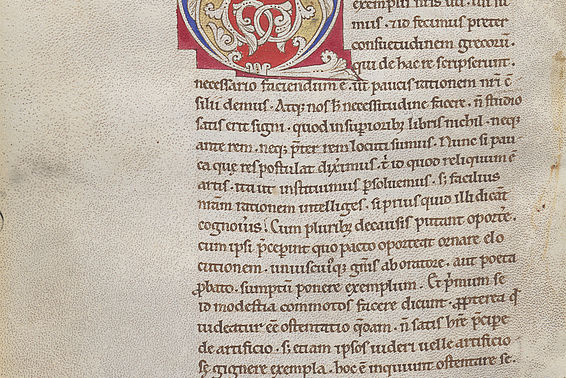 exemplis
mus. id fecimus preter
consuetudinem grecoꝝ.
qui de hac re scripserunt.
necessario faciendum ē. ut paucis rationem nr̄i c̄
silii demus. Atq; nos h̄ necessitudine facere. n̄ studio
satis erit signi. quod in superiorib; libris nichil. neq;
ante rem. neq; p̄ter rem locuti sumus. Nunc si pau
ca que res postulat dixrimus. t͛ id quod reliquum ē
artis. ita ut instituimus ꝑsoluemus. s; facilius
nr̄am rationem intelliges. si prius quid illi dicāt
cognoius! Cum plurib; de causis putant oportē.
cum ipsi p̄cepint quo pacto oporteat ornare elo
cutionem. uniuscuiꝰq; gn̄is ab oratore. aut poeta
ꝓbato. sumptū ponere exemplum. Et p̄mum se
id modestia commotos facere dicunt. ꝓpterea qđ
uideatur eē ostentatio q̄dam. n̄ satis hr̄e p̄cipe
de artificio. s; etiam ipsos uideri uelle artificio
se gignere exempla. hoc ē inquiunt ostentare se.